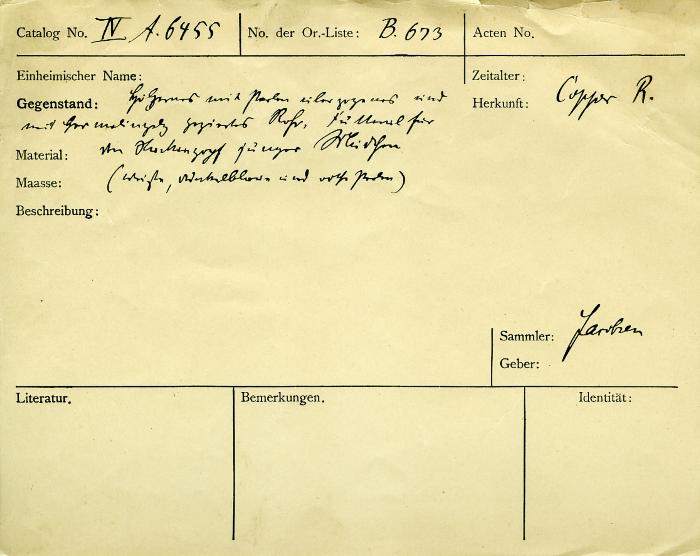 Catalog No. IV A. 6455
No. der Or.-Liste: B. 673
Acten No.
Einheimischer Name:
Zeitalter:
Gegenstand: Hölzernes mit Perlen überzogenes und
Herkunft: Copper R.
mit Hermelinpelz geziertes Rohr, Futteral für
Material: den Nackenzopf junger Mädchen
Maasse: (weiße, dunkelblaue und rothe Perlen)
Beschreibung:
Sammler: Jacobsen
Geber:
Literatur.
Bemerkungen.
Identität: